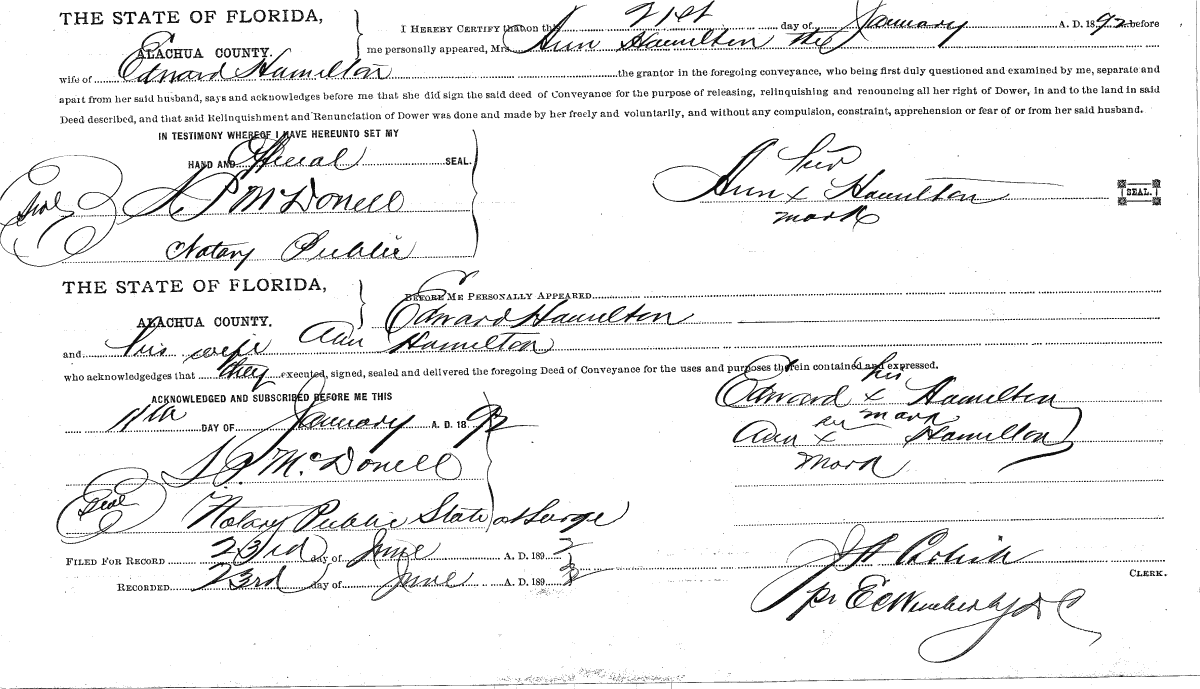 THE STATE OF FLORIDA,
ALACHUA COUNTY.
I HEREBY CERTIFY that on this 21st day of January A. D. 1892 before
me personally appeared, Mrs. Ann Hamilton the
wife of Edward Hamilton the grantor in the foregoing conveyance, who being first duly questioned and examined by me, separate and
apart from her said husband, says and acknowledges before me that she did sign the said deed of Conveyance for the purpose of releasing, relinquishing and renouncing all her right of Dower, in and to the land in said
Deed described, and that said Relinquishment and Renunciation of Dower was done and made by her freely and voluntarily, and without any compulsion, constraint, apprehension or fear of or from her said husband.
IN TESTIMONY WHEREOF I HAVE HEREUNTO SET MY
HAND AND Official SEAL.
Seal
McDonell
Notary Public
her
Ann x Hamilton
mark
SEAL.
THE STATE OF FLORIDA,
ALACHUA COUNTY.
BEFORE ME PERSONALLY APPEARED
Edward Hamilton
and his wife Ann Hamilton
who acknowledgedges that they executed, signed, sealed and delivered the foregoing Deed of Conveyance for the uses and purposes therein contained and expressed.
ACKNOWLEDGED AND SUBSCRIBED BEFORE ME THIS
11th DAY OF January A. D. 1892
McDonell
Seal
Notary Public State at Large
his
Edward x Hamilton
mark
Ann x Hamilton
mark
FILED FOR RECORD 23rd day of June A. D. 1892
RECORDED 23rd day of June A. D. 1892
CLERK.
pr E C Wimberly D C